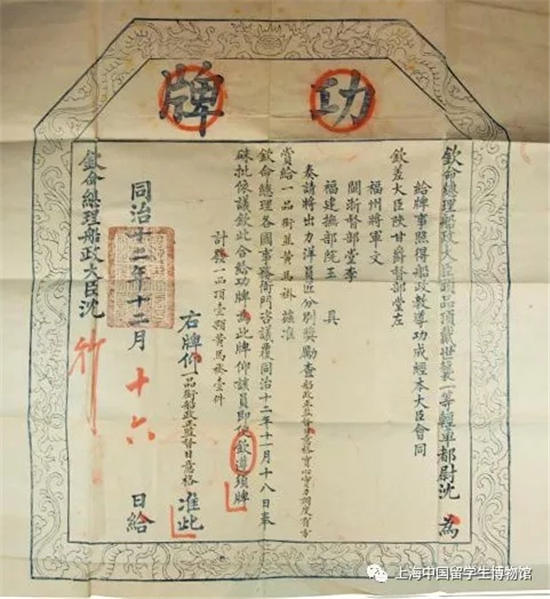 功牌
欽命總理船政大臣頭品頂戴世襲一等輕車都尉沈 為
給牌事照得船政教導功成經本大臣會同
欽差大臣陝甘爵督部堂左
福州將軍文
閩浙督部堂李
福建撫部院王 具
奏請將出力洋員匠分別獎勵查船政正監督日意格實心實力調度有方
賞給一品銜並黃馬褂議准
欽命總理各國事務衙門咨議覆同治十二年十一月十八日奉
硃批依議欽此合給功牌為此牌仰該員即便欽遵須牌
計發一品頂壹顆黃馬褂壹件
右牌仰一品銜船政正監督日意格准此
同治十二年十二月十六日給
欽命總理船政大臣沈 行
上海中国留学生博物馆